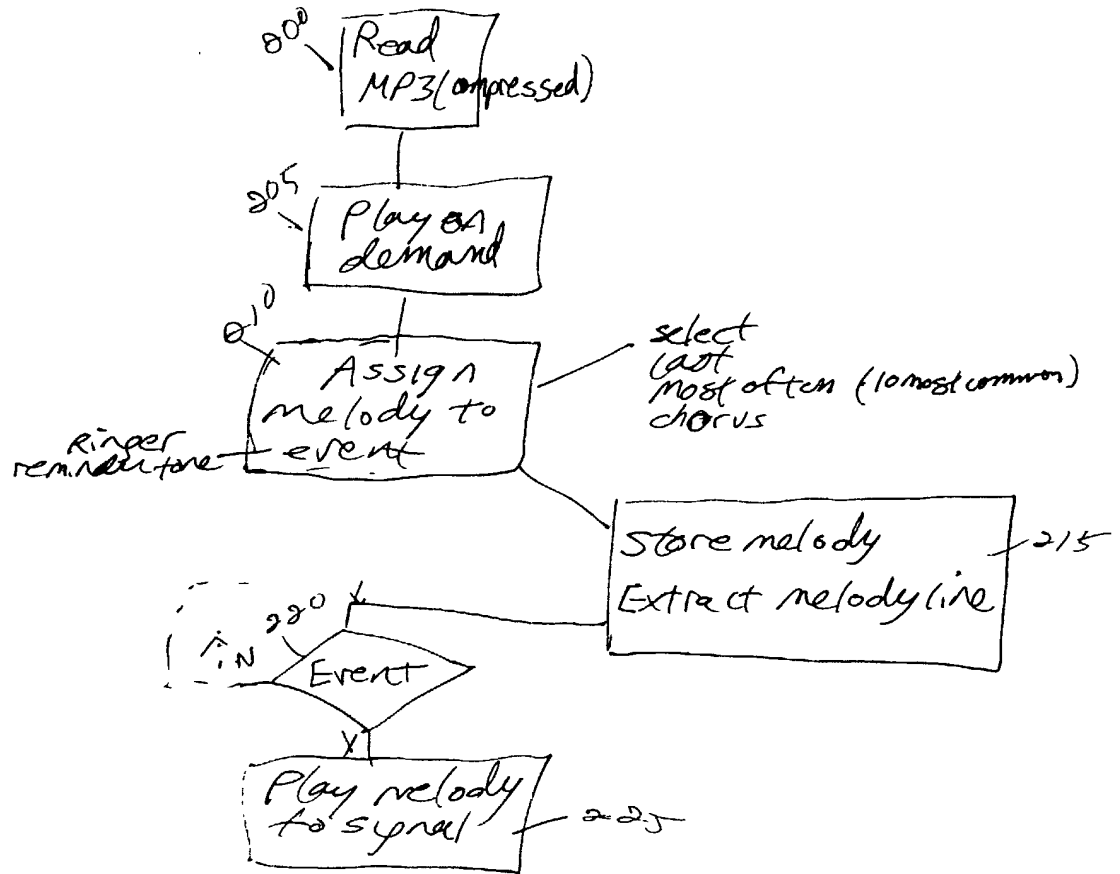 200
Read
MP3 (compressed)
205
Play on
demand
210
Assign
melody to
event
select
last
most often (10 most common)
chorus
Ringer
reminder tone
Store melody
Extract melody line
215
220
N
Event
Y
Play melody
to signal
225